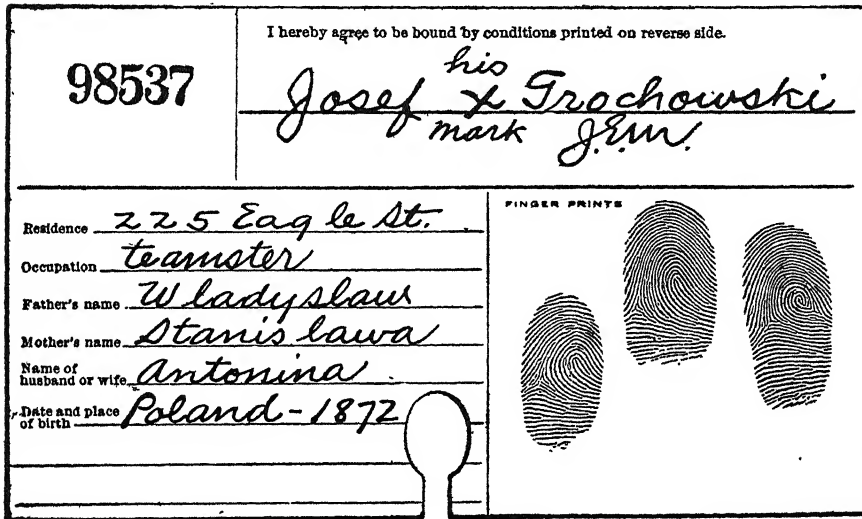 98537
I hereby agree to be bound by conditions printed on reverse side.
his
Josef x Grochowski
mark J.E.W.
Residence 225 Eagle St.
Occupation teamster
Father's name Wladyslaw
Mother's name Stanislawa
Name of
husband or wife Antonina
Date and place
of birth Poland - 1872
FINGER PRINTS